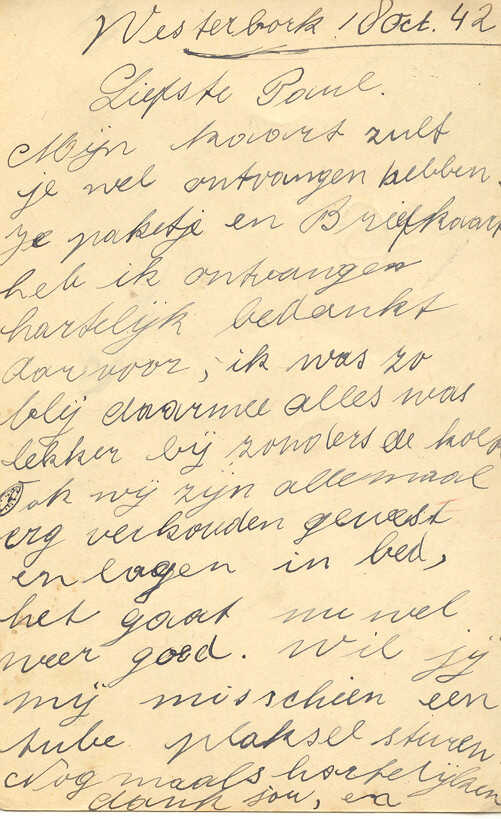 Westerbork 18 Oct. 42
Liefste Paul.
Mijn kaart zult
je wel ontvangen hebben.
Je paketje en Briefkaart
heb ik ontvangen
hartelijk bedankt
daarvoor, ik was zo
blij daarmee alles was
lekker bij zonders de
ok wij zijn allemaal
erg verkouden geweest
en lagen in bed,
het gaat nu wel
weer goed. Wil jij
mij misschien een
tube plaksel sturen
Nog maals hartelijken
dank hou, en